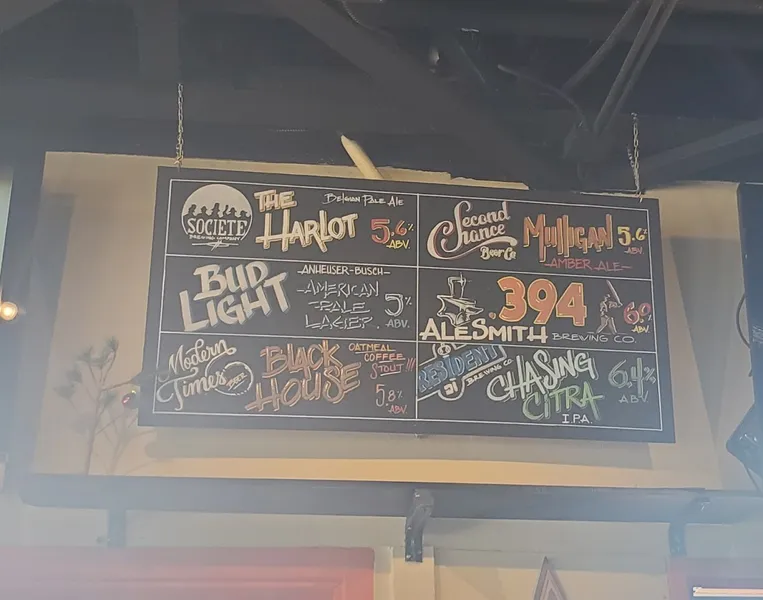 SOCIETE
BREWING COMPANY
THE
HARLOT
BELGIAN PALE ALE
5.6%
ABV.
Second
Chance
Beer Co
MULLIGAN
AMBER ALE
5.6%
ABV.
BUD
LIGHT
-ANHEUSER-BUSCH-
AMERICAN
PALE
LAGER.
5%
ABV.
.394
ALESMITH
BREWING CO.
6.0%
ABV
Modern
Times
BEER
BLACK
HOUSE
OATMEAL
COFFEE
STOUT!!!
5.8%
ABV
RESIDENT
BREWING CO.
CHASING
CITRA
I.P.A.
6.4%
ABV